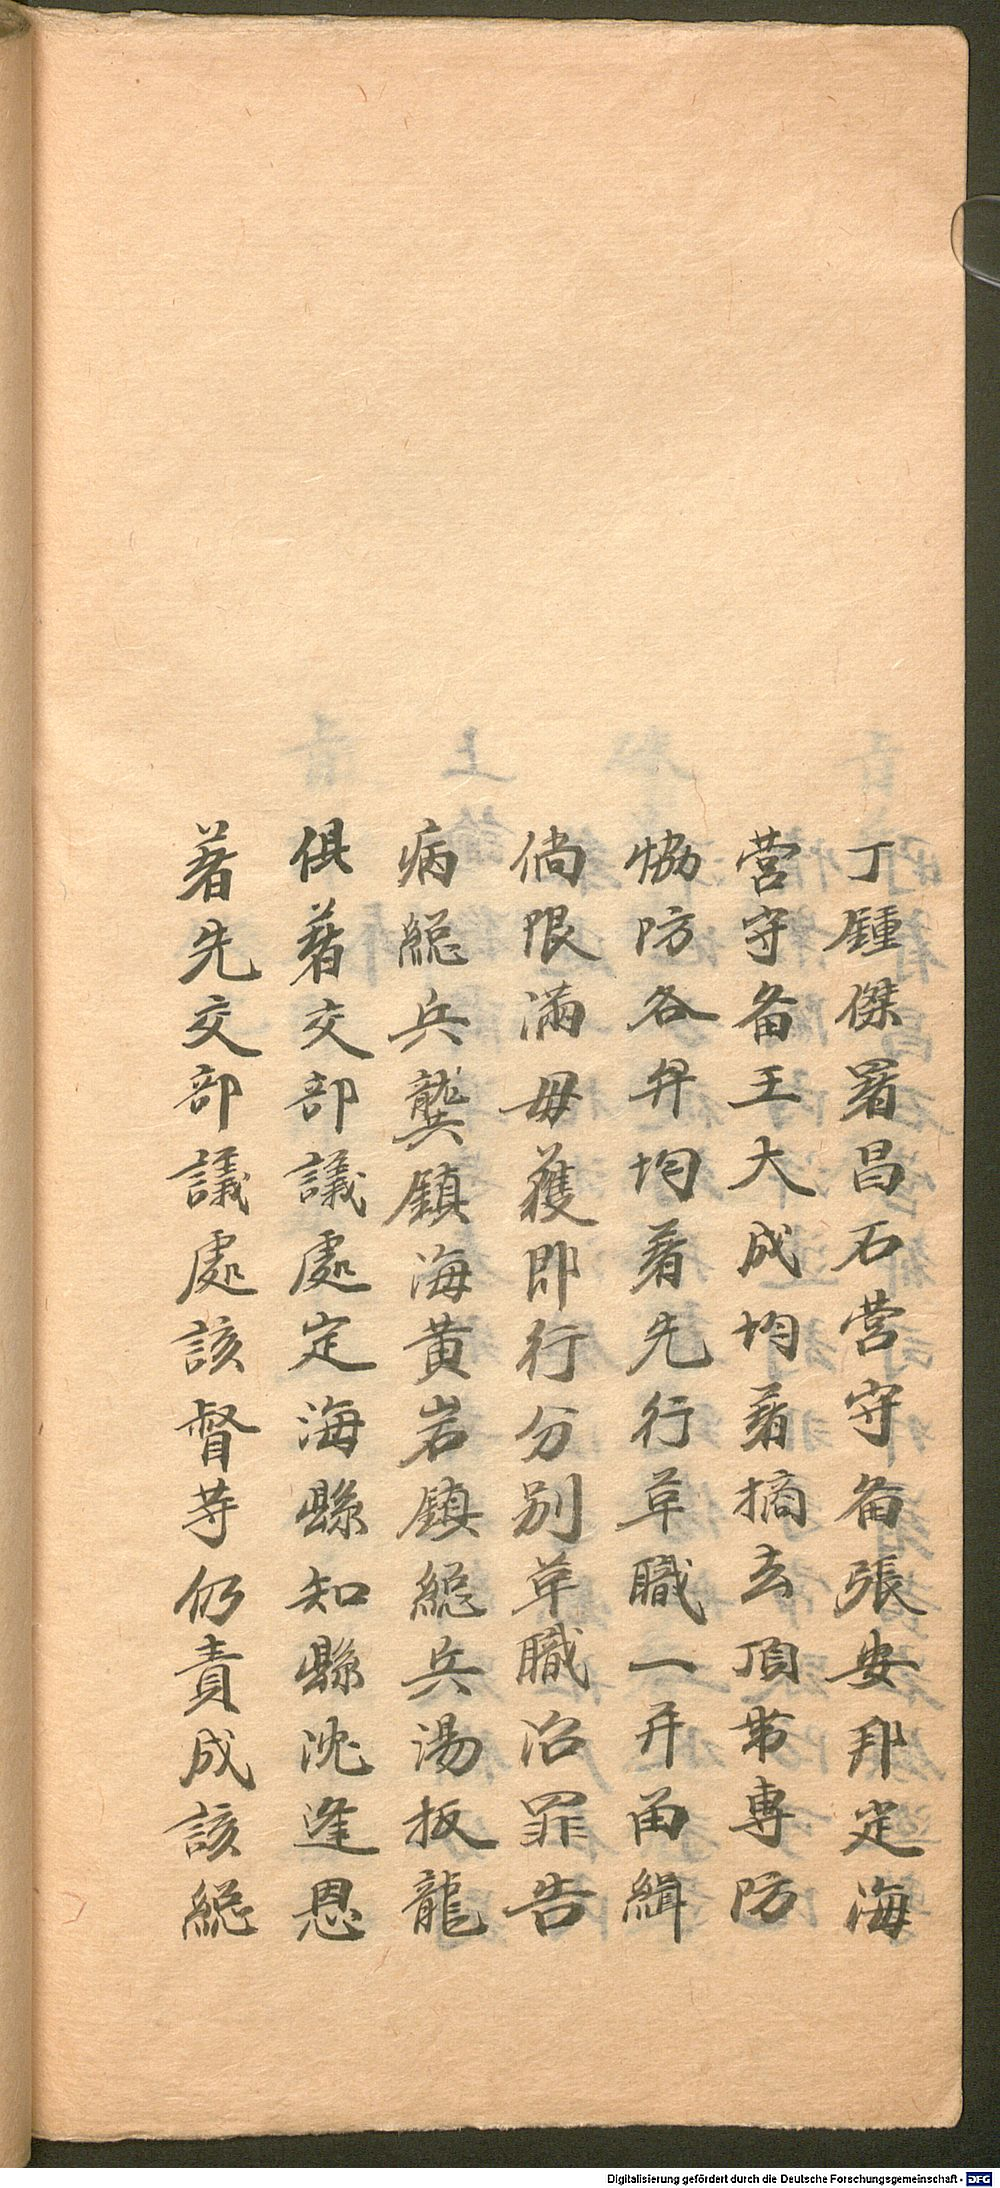 丁鍾傑署昌石营守备張安邦定海
营守备王大成均着摘去頂带專防
恊防各弁均着先行革職一并畄緝
倘限滿毋獲即行分別革職治罪告
病緫兵龔鎮海黄岩鎮緫兵湯扳龍
俱著交部議處定海縣知縣沈逢恩
著先交部議處該督等仍責成該緫
Digitalisierung gefördert durch die Deutsche Forschungsgemeinschaft - DFG